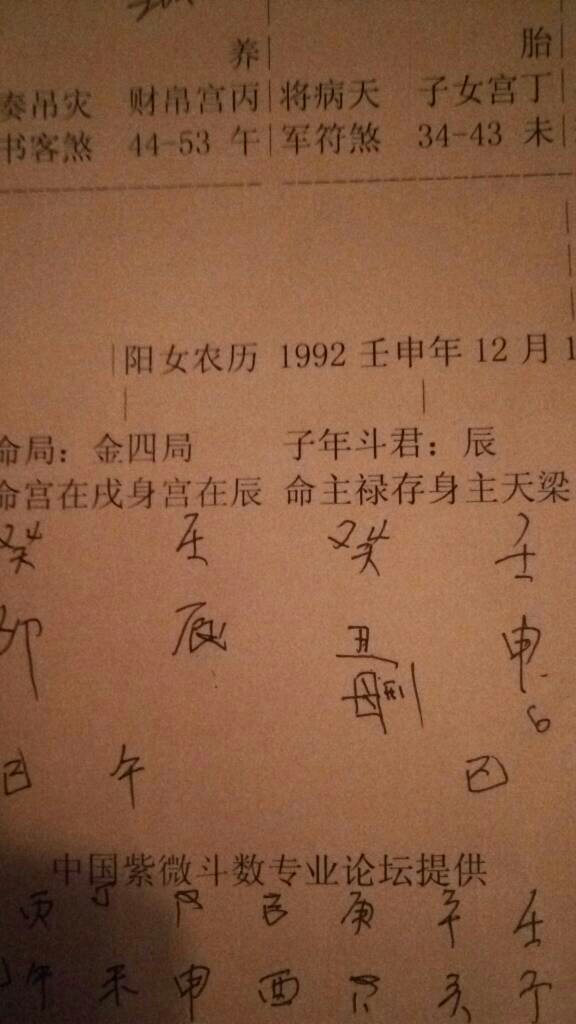 养 胎
奏吊灾 财帛宫丙 将病天 子女宫丁
书客煞 44-53 午 军符煞 34-43 未
阳女农历 1992 壬申年 12 月 1
命局: 金四局 子年斗君: 辰
命宫在戌身宫在辰 命主禄存身主天梁
癸 壬 癸 壬
卯 辰 丑 申
6
午 巳
中国紫微斗数专业论坛提供
丙 丁 戊 己 庚 辛 壬
午 未 申 酉 亥 子